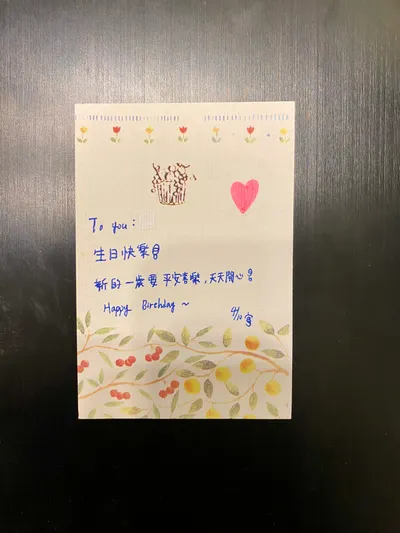 To you:
生日快樂!
新的一歲要平安喜樂,天天開心!
Happy Birthday ~
4/10